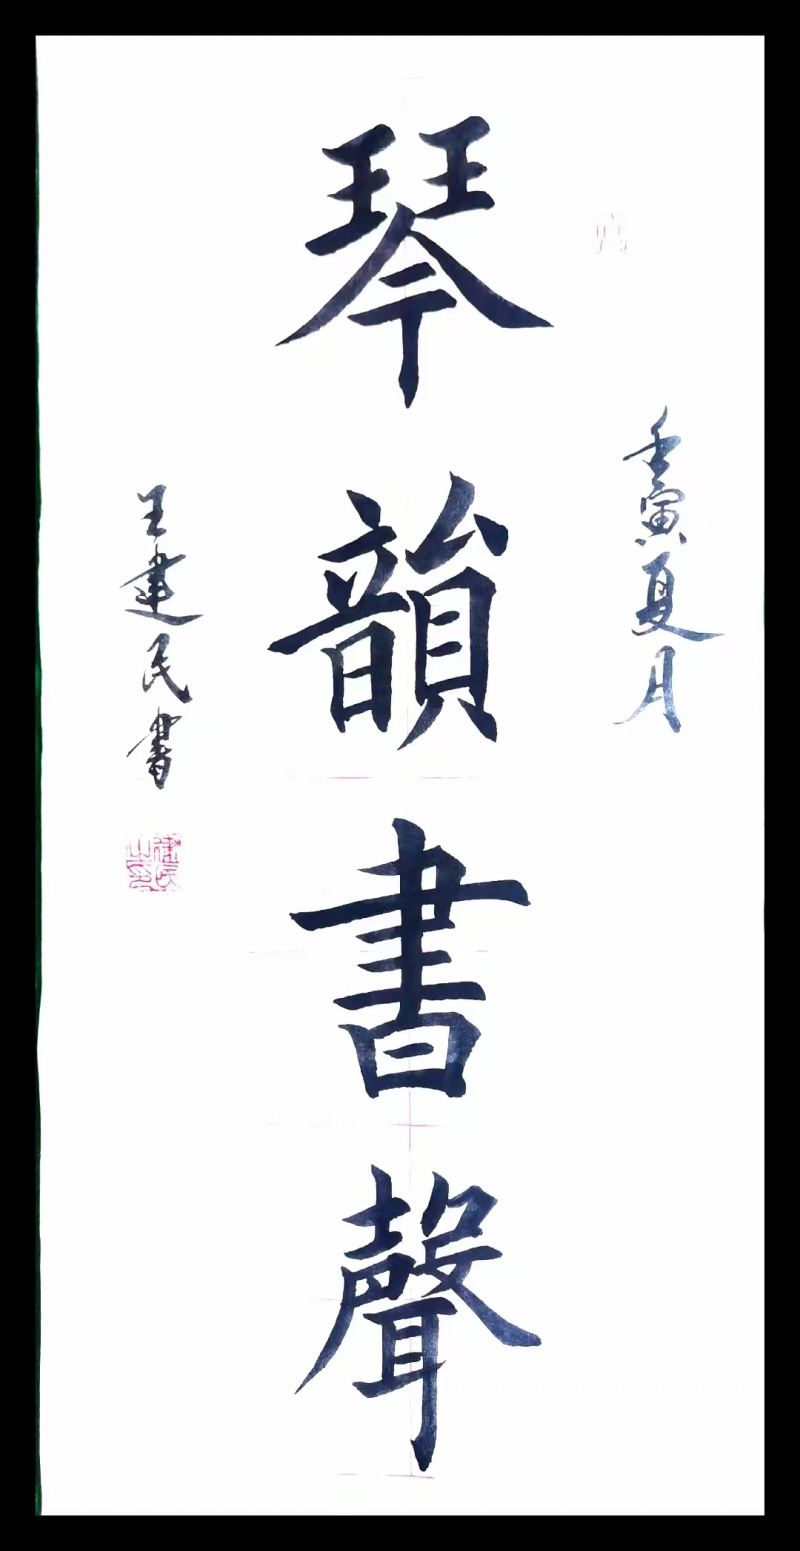 壬寅夏月
琴韻書聲
王建民書